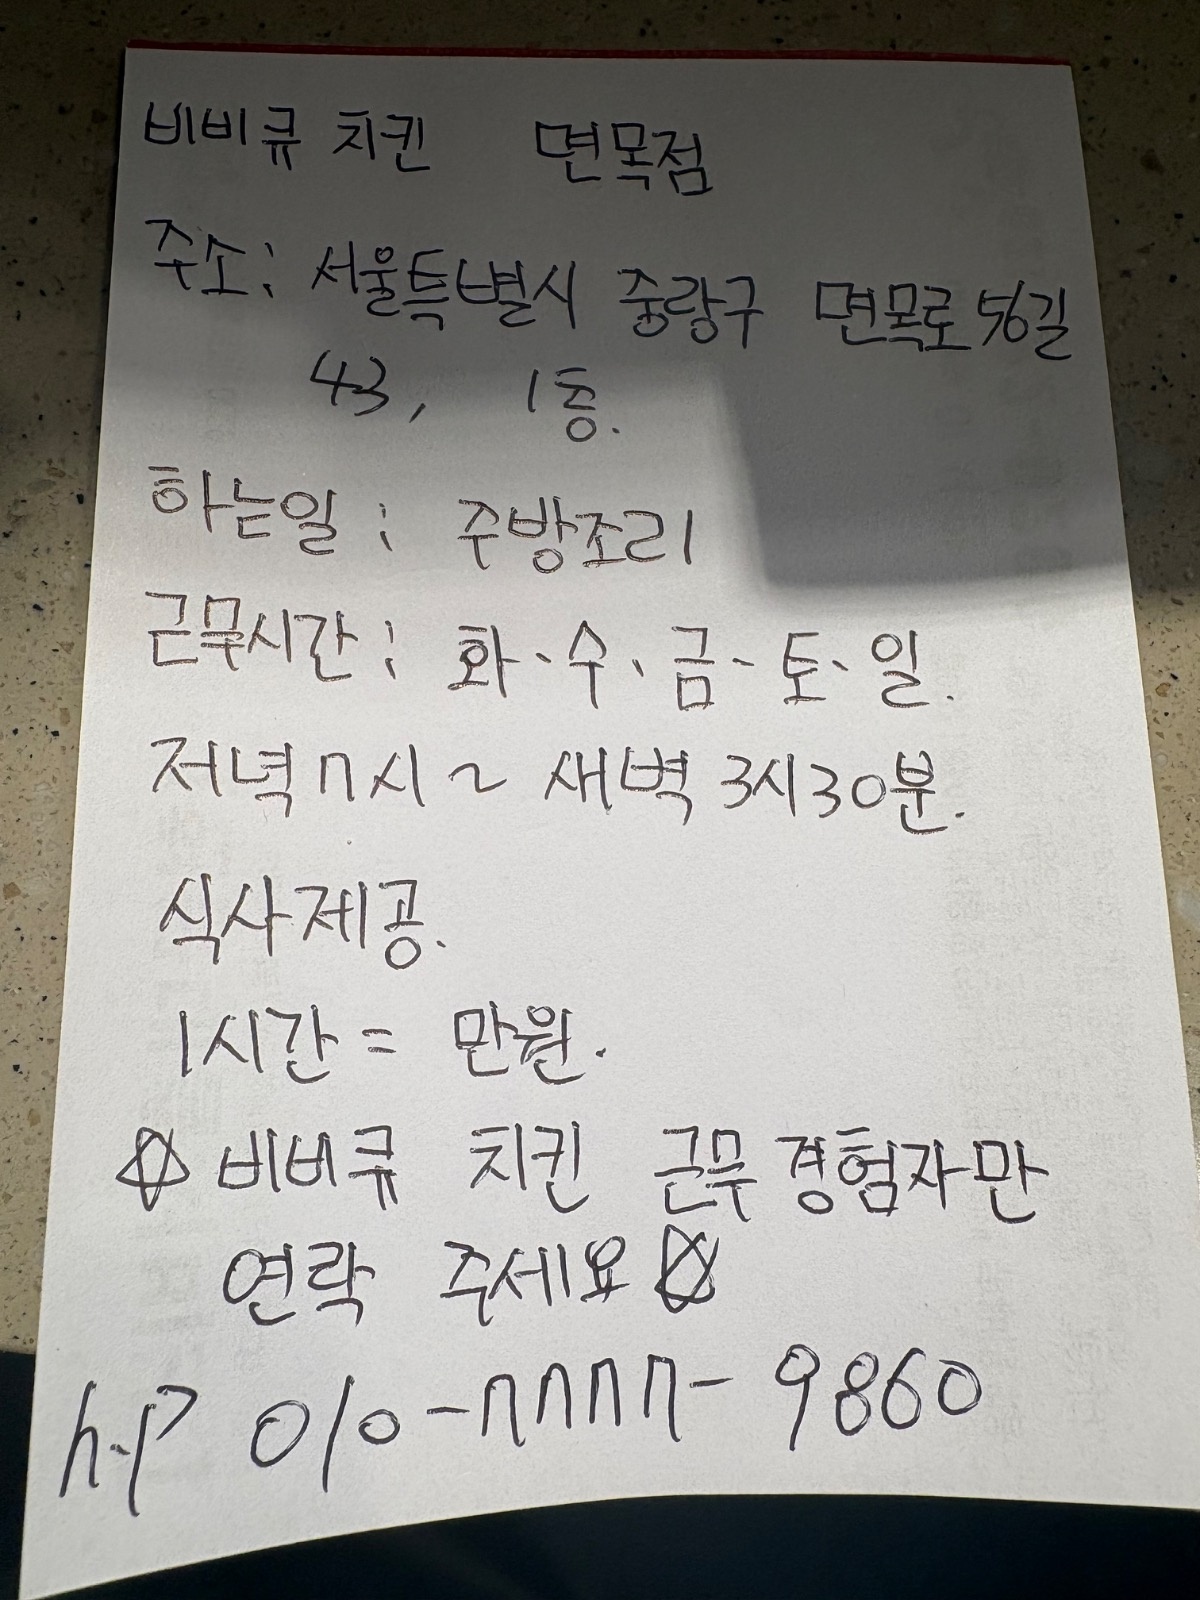 비비큐 치킨 면목점
주소: 서울특별시 중랑구 면목로56길
43, 1층.
하는일: 주방조리
근무시간: 화·수·금·토·일.
저녁7시~새벽3시30분.
식사제공.
1시간= 만원.
☆비비큐 치킨 근무경험자만
연락 주세요☆
h.P 010-7777-9860